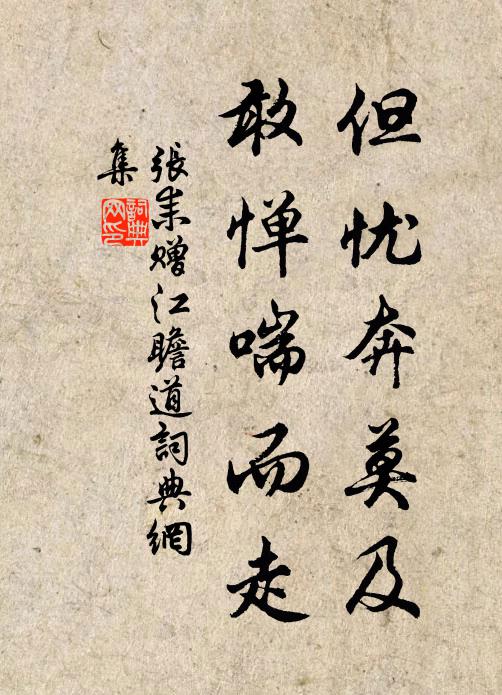 但忧奔莫及
敢惮喘而走
張耒赠江瞻道詞典網
集
詞典
网印